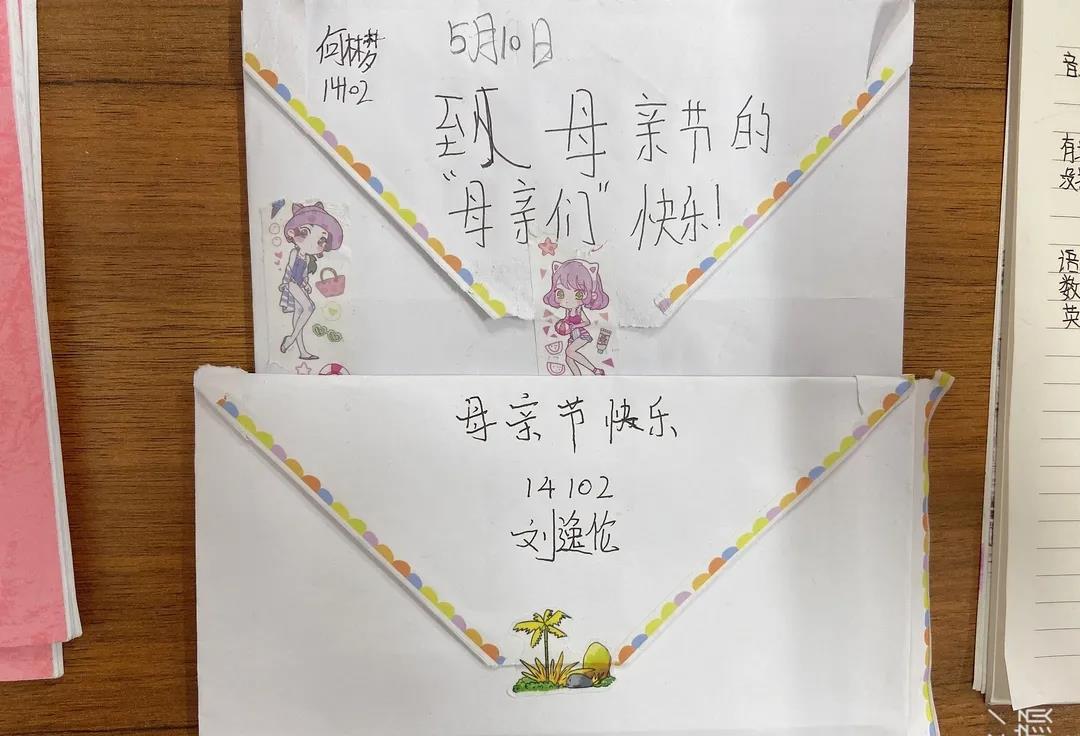 何林梦
14102
5月10日
致 母亲节的
“母亲们”快乐!
母亲节快乐
14102
刘逸伦
音
有
没
语
数
英